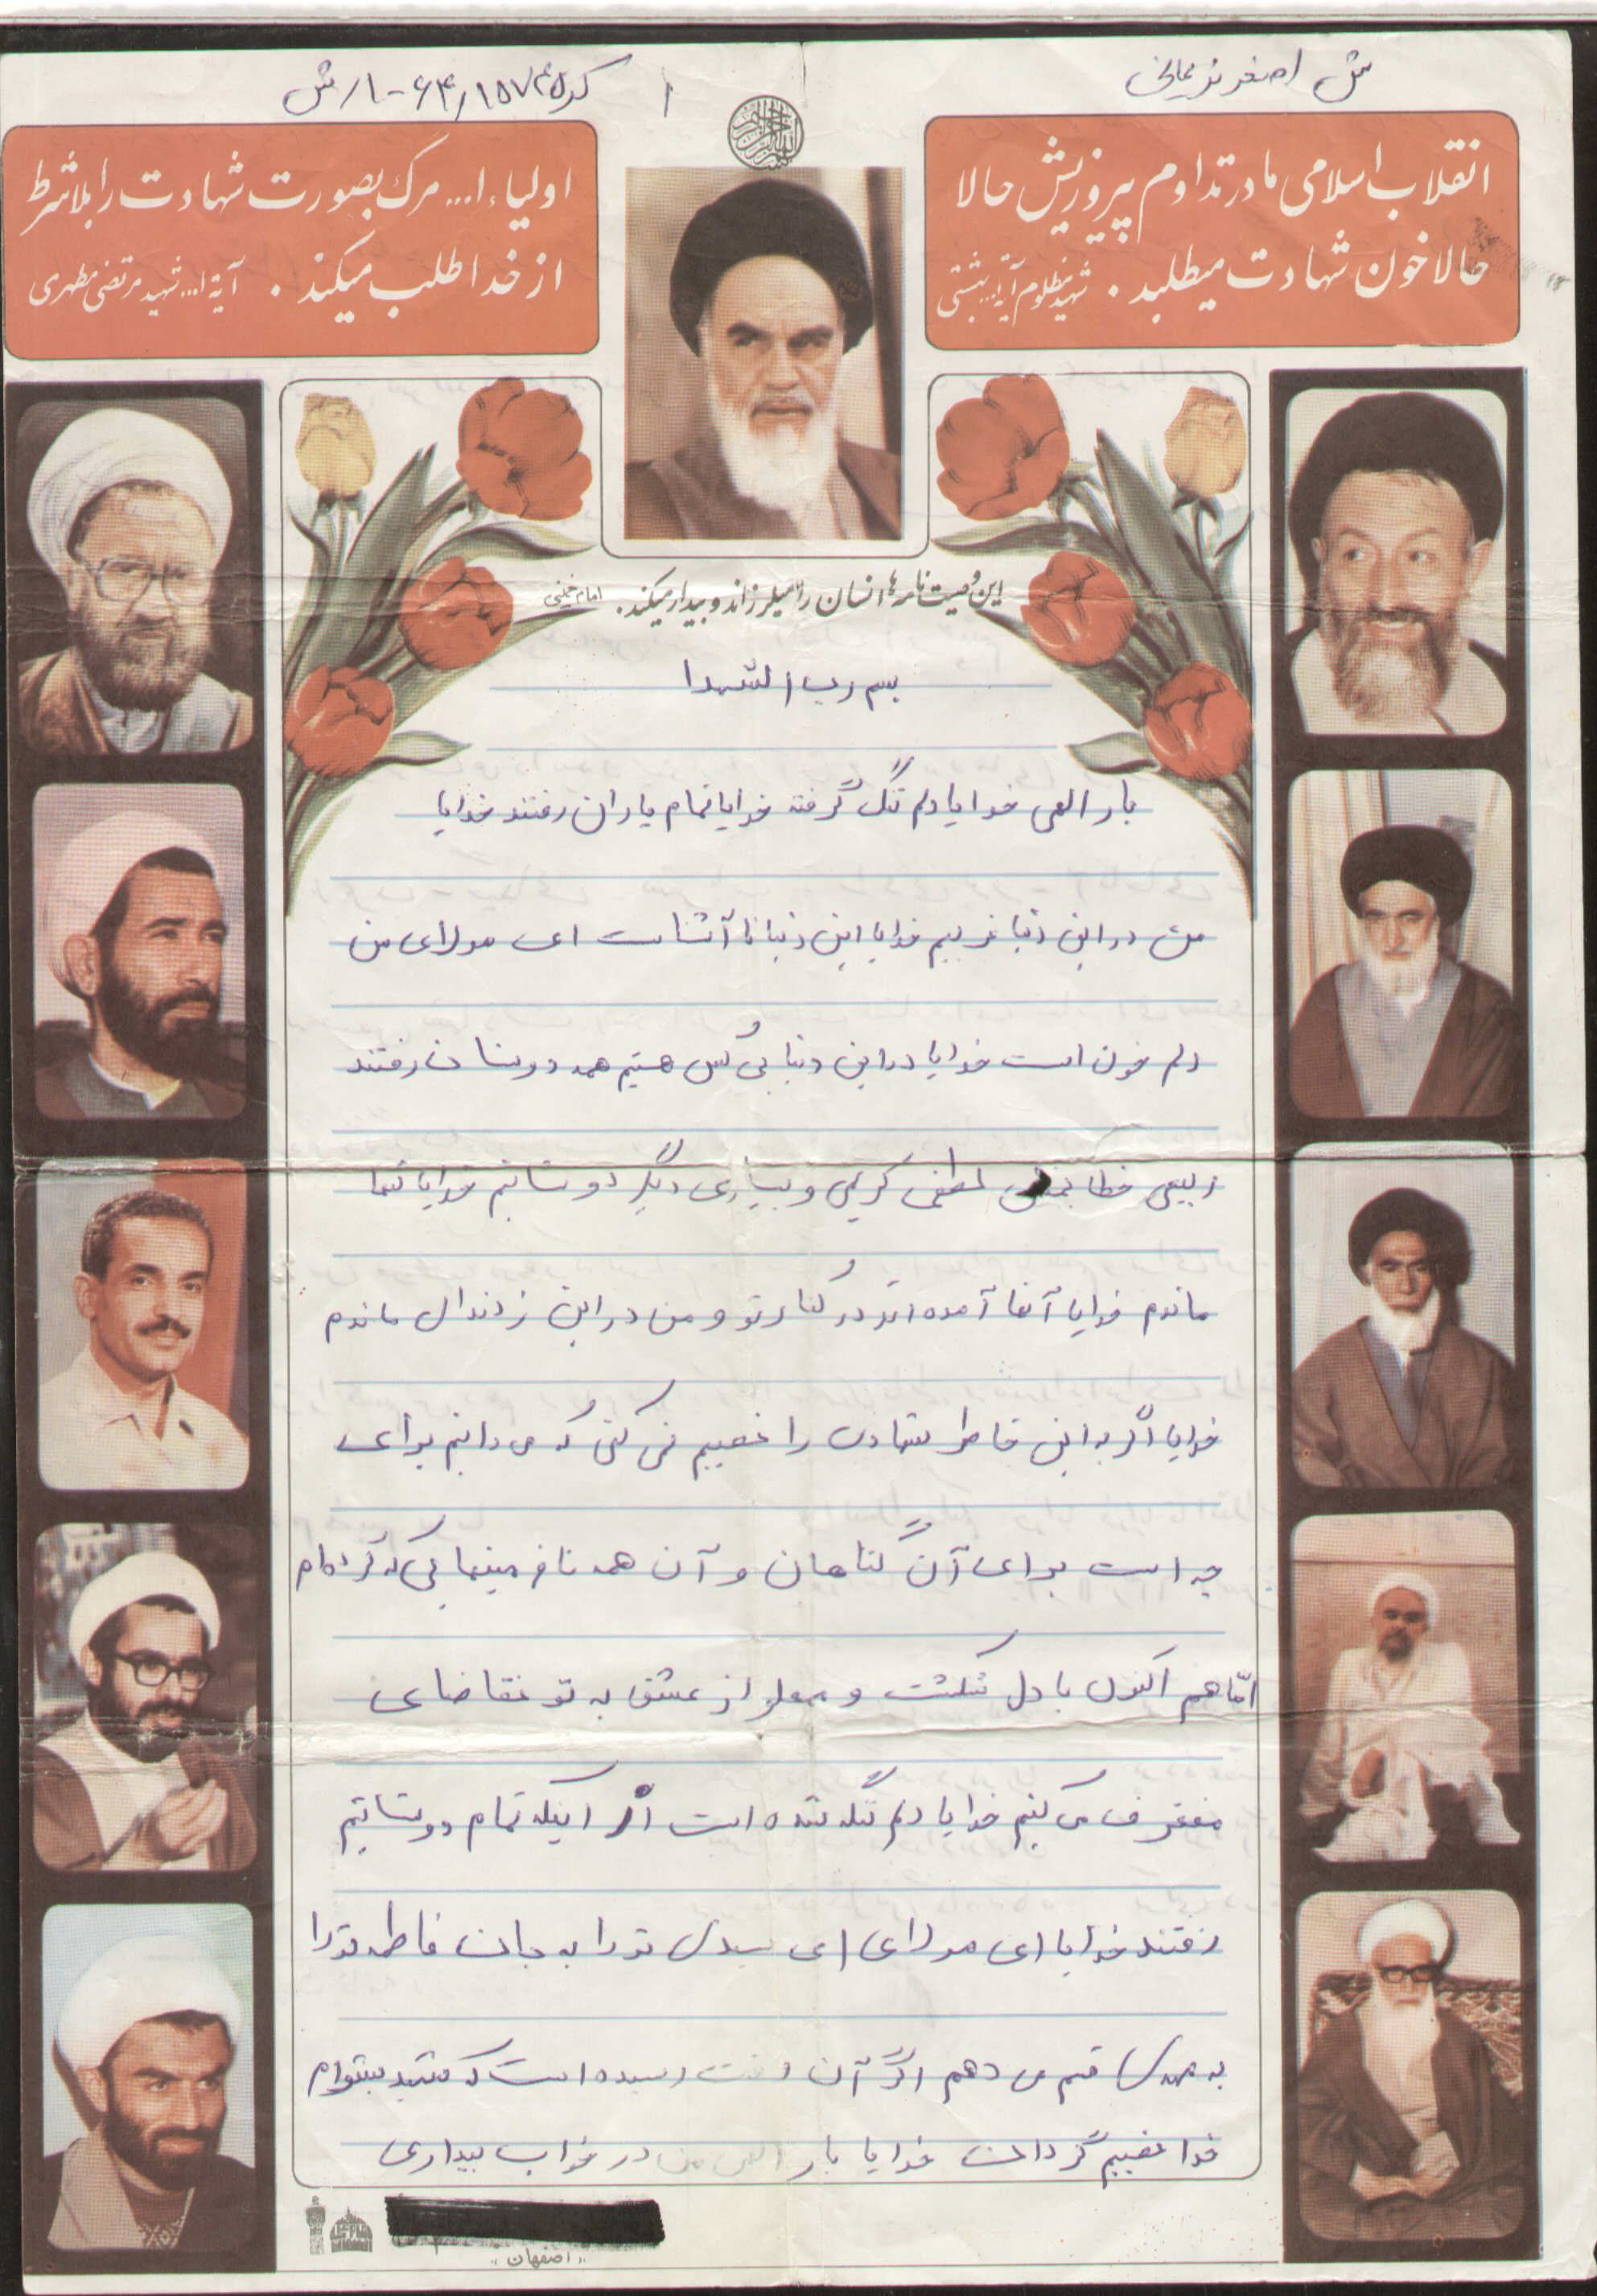 ش اصغر نریمانی
۱
کد ۱۵۷۴۵/۶۴-۱/ر ش
انقلاب اسلامی ما در تداوم پیروزیش حالا
حالا خون شهادت میطلبد . شهید مظلوم آیة ا... بهشتی
اولیاء ا... مرگ بصورت شهادت را بلاشرط
از خدا طلب میکند . آیة ا... شهید مرتضی مطهری
این وصیت نامه ها انسان را میلرزاند و بیدار میکند. امام خمینی
بسم رب الشهدا
بار الهی خدایا دلم تنگ گرفته خدایا تمام یاران رفتند خدایا
من در این دنیا غریبم خدایا این دنیا ناآشناست ای مولای من
دلم خون است خدایا در این دنیا بی کس هستم همه دوستان رفتند
ربیعی خطا بخش لطفی کریمی و بسیاری دیگر دوستانم خدایا تنها
ماندم خدایا آنها آمده اند در کنار تو و من در این زندان ماندم
خدایا اگر به این خاطر شهادت را نصیبم نمی کنی که می دانم برای
چه است برای آن گناهان و آن همه نافرمینهایی که کرده ام
امّا هم اکنون با دل شکسته و مملو از عشق به تو تقاضای
می کنم خدایا دلم تنگ شده است از اینکه تمام دوستانم
رفتند خدایا ای مولای ای سیدی تو را به جان فاطمه تو را
به مهدی قسم می دهم اگر آن وقت رسیده است که
خدا نصیبم گردان خدایا بار الهی من در خواب بیداری
اصفهان